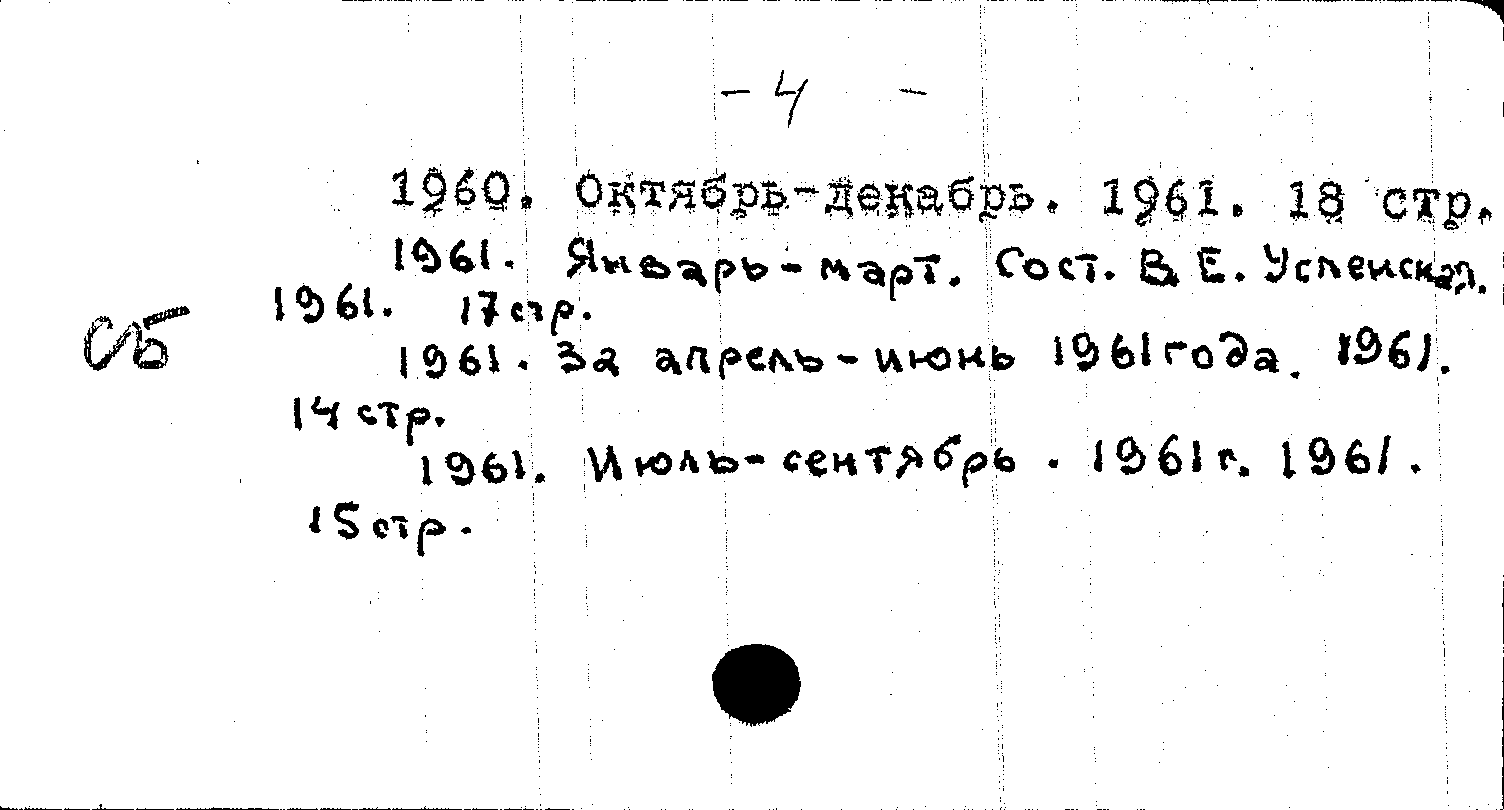 - 4 -
1960. Октябрь-декабрь. 1961. 18 стр.
1961. Январь-март. Сост. В. Е. Успенская.
1961. 17 стр.
сб
1961. За апрель-июнь 1961 года. 1961.
14 стр.
1961. Июль-сентябрь. 1961 г. 1961.
15 стр.